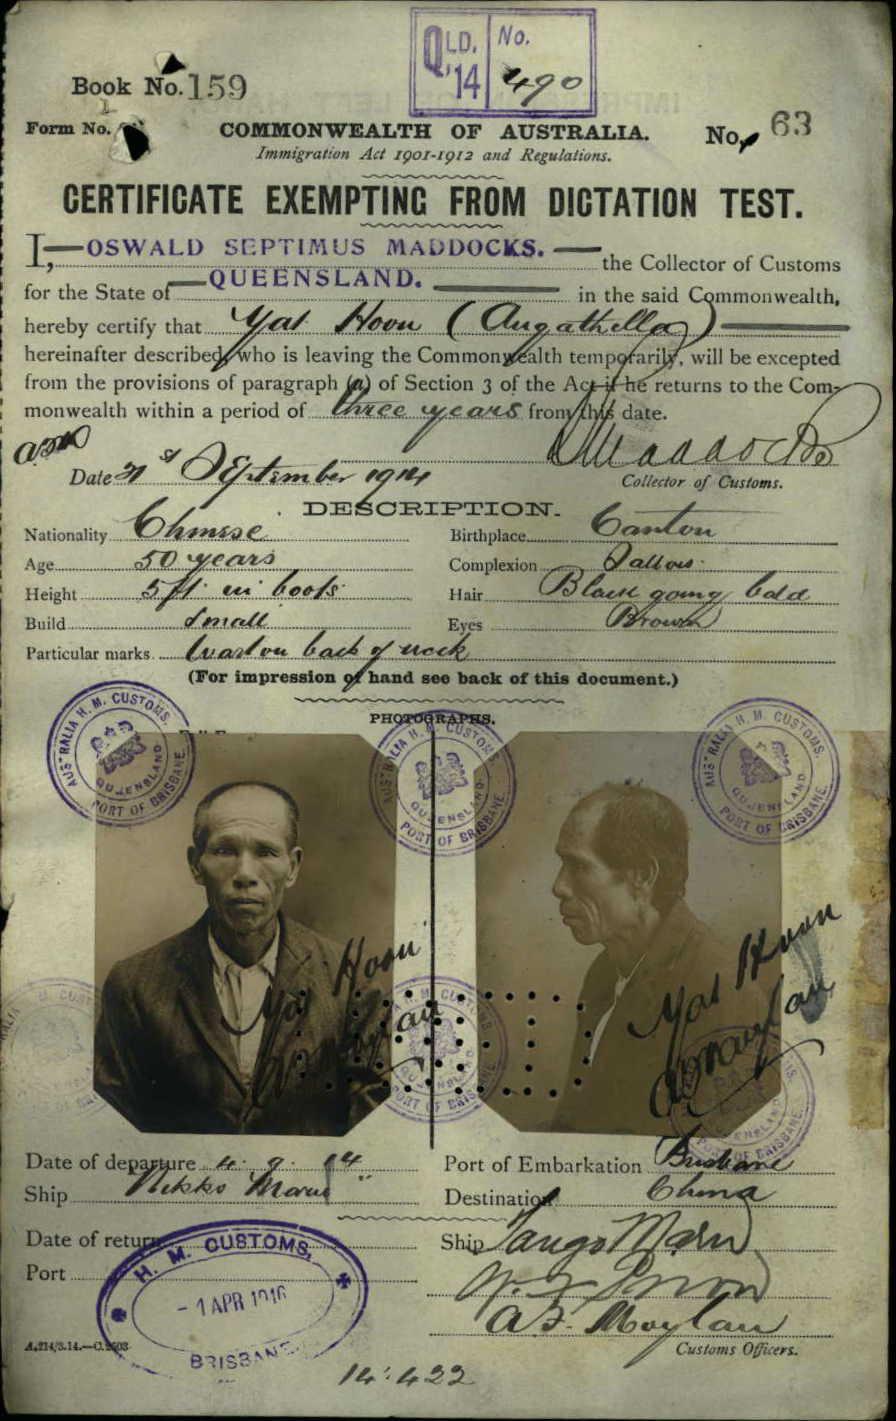 QLD. No.
'14 490
Book No. 159
Form No.
COMMONWEALTH OF AUSTRALIA. No. 63
Immigration Act 1901-1912 and Regulations.
CERTIFICATE EXEMPTING FROM DICTATION TEST.
I, OSWALD SEPTIMUS MADDOCKS. the Collector of Customs
for the State of QUEENSLAND. in the said Commonwealth,
hereby certify that Yat Hoon (Augathella)
hereinafter described, who is leaving the Commonwealth temporarily, will be excepted
from the provisions of paragraph (a) of Section 3 of the Act if he returns to the Com-
monwealth within a period of three years from this date.
Maddocks
Date September 1914 Collector of Customs.
DESCRIPTION.
Nationality Chinese Birthplace Canton
Age 50 years Complexion Sallow
Height 5ft in boots Hair Black going bald
Build Small Eyes Brown
Particular marks. Wart on back of neck
(For impression of hand see back of this document.)
PHOTOGRAPHS.
AUSTRALIA H. M. CUSTOMS. QUEENSLAND PORT OF BRISBANE.
AUSTRALIA H. M. CUSTOMS. QUEENSLAND PORT OF BRISBANE.
AUSTRALIA H. M. CUSTOMS. QUEENSLAND PORT OF BRISBANE.
Yat Hoon
Yat Hoon
Date of departure 4. 9. 14 Port of Embarkation Brisbane
Ship Nikko Maru Destination China
Date of return Ship Tango Maru
Port
H. M. CUSTOMS,
- 1 APR 1916
BRISBANE
A F. Moylan
A.214/3.14.—C.2503 Customs Officers.
14.422